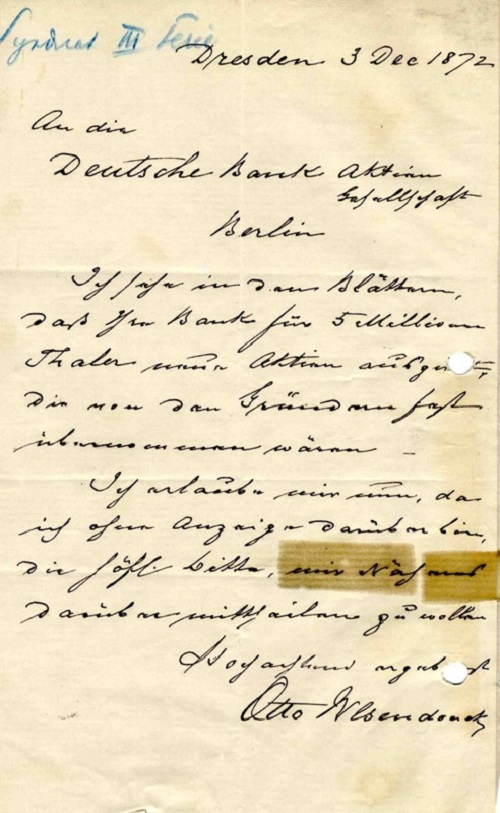 Syndicat III Serie
Dresden 3 Dec 1872
An die
Deutsche Bank Aktien
Gesellschaft
Berlin
Ich sehe in den Blättern,
daß Ihre Bank für 5 Millionen
Thaler neue Aktien
die von den Gründern fest
übernommen wären –
Ich erlaube mir nun, da
ich ohne Anzeige darüber bin,
die höfl. Bitte, mir Näheres
darüber mittheilen zu wollen
Hochachtend ergebenst
Otto Wesendonck